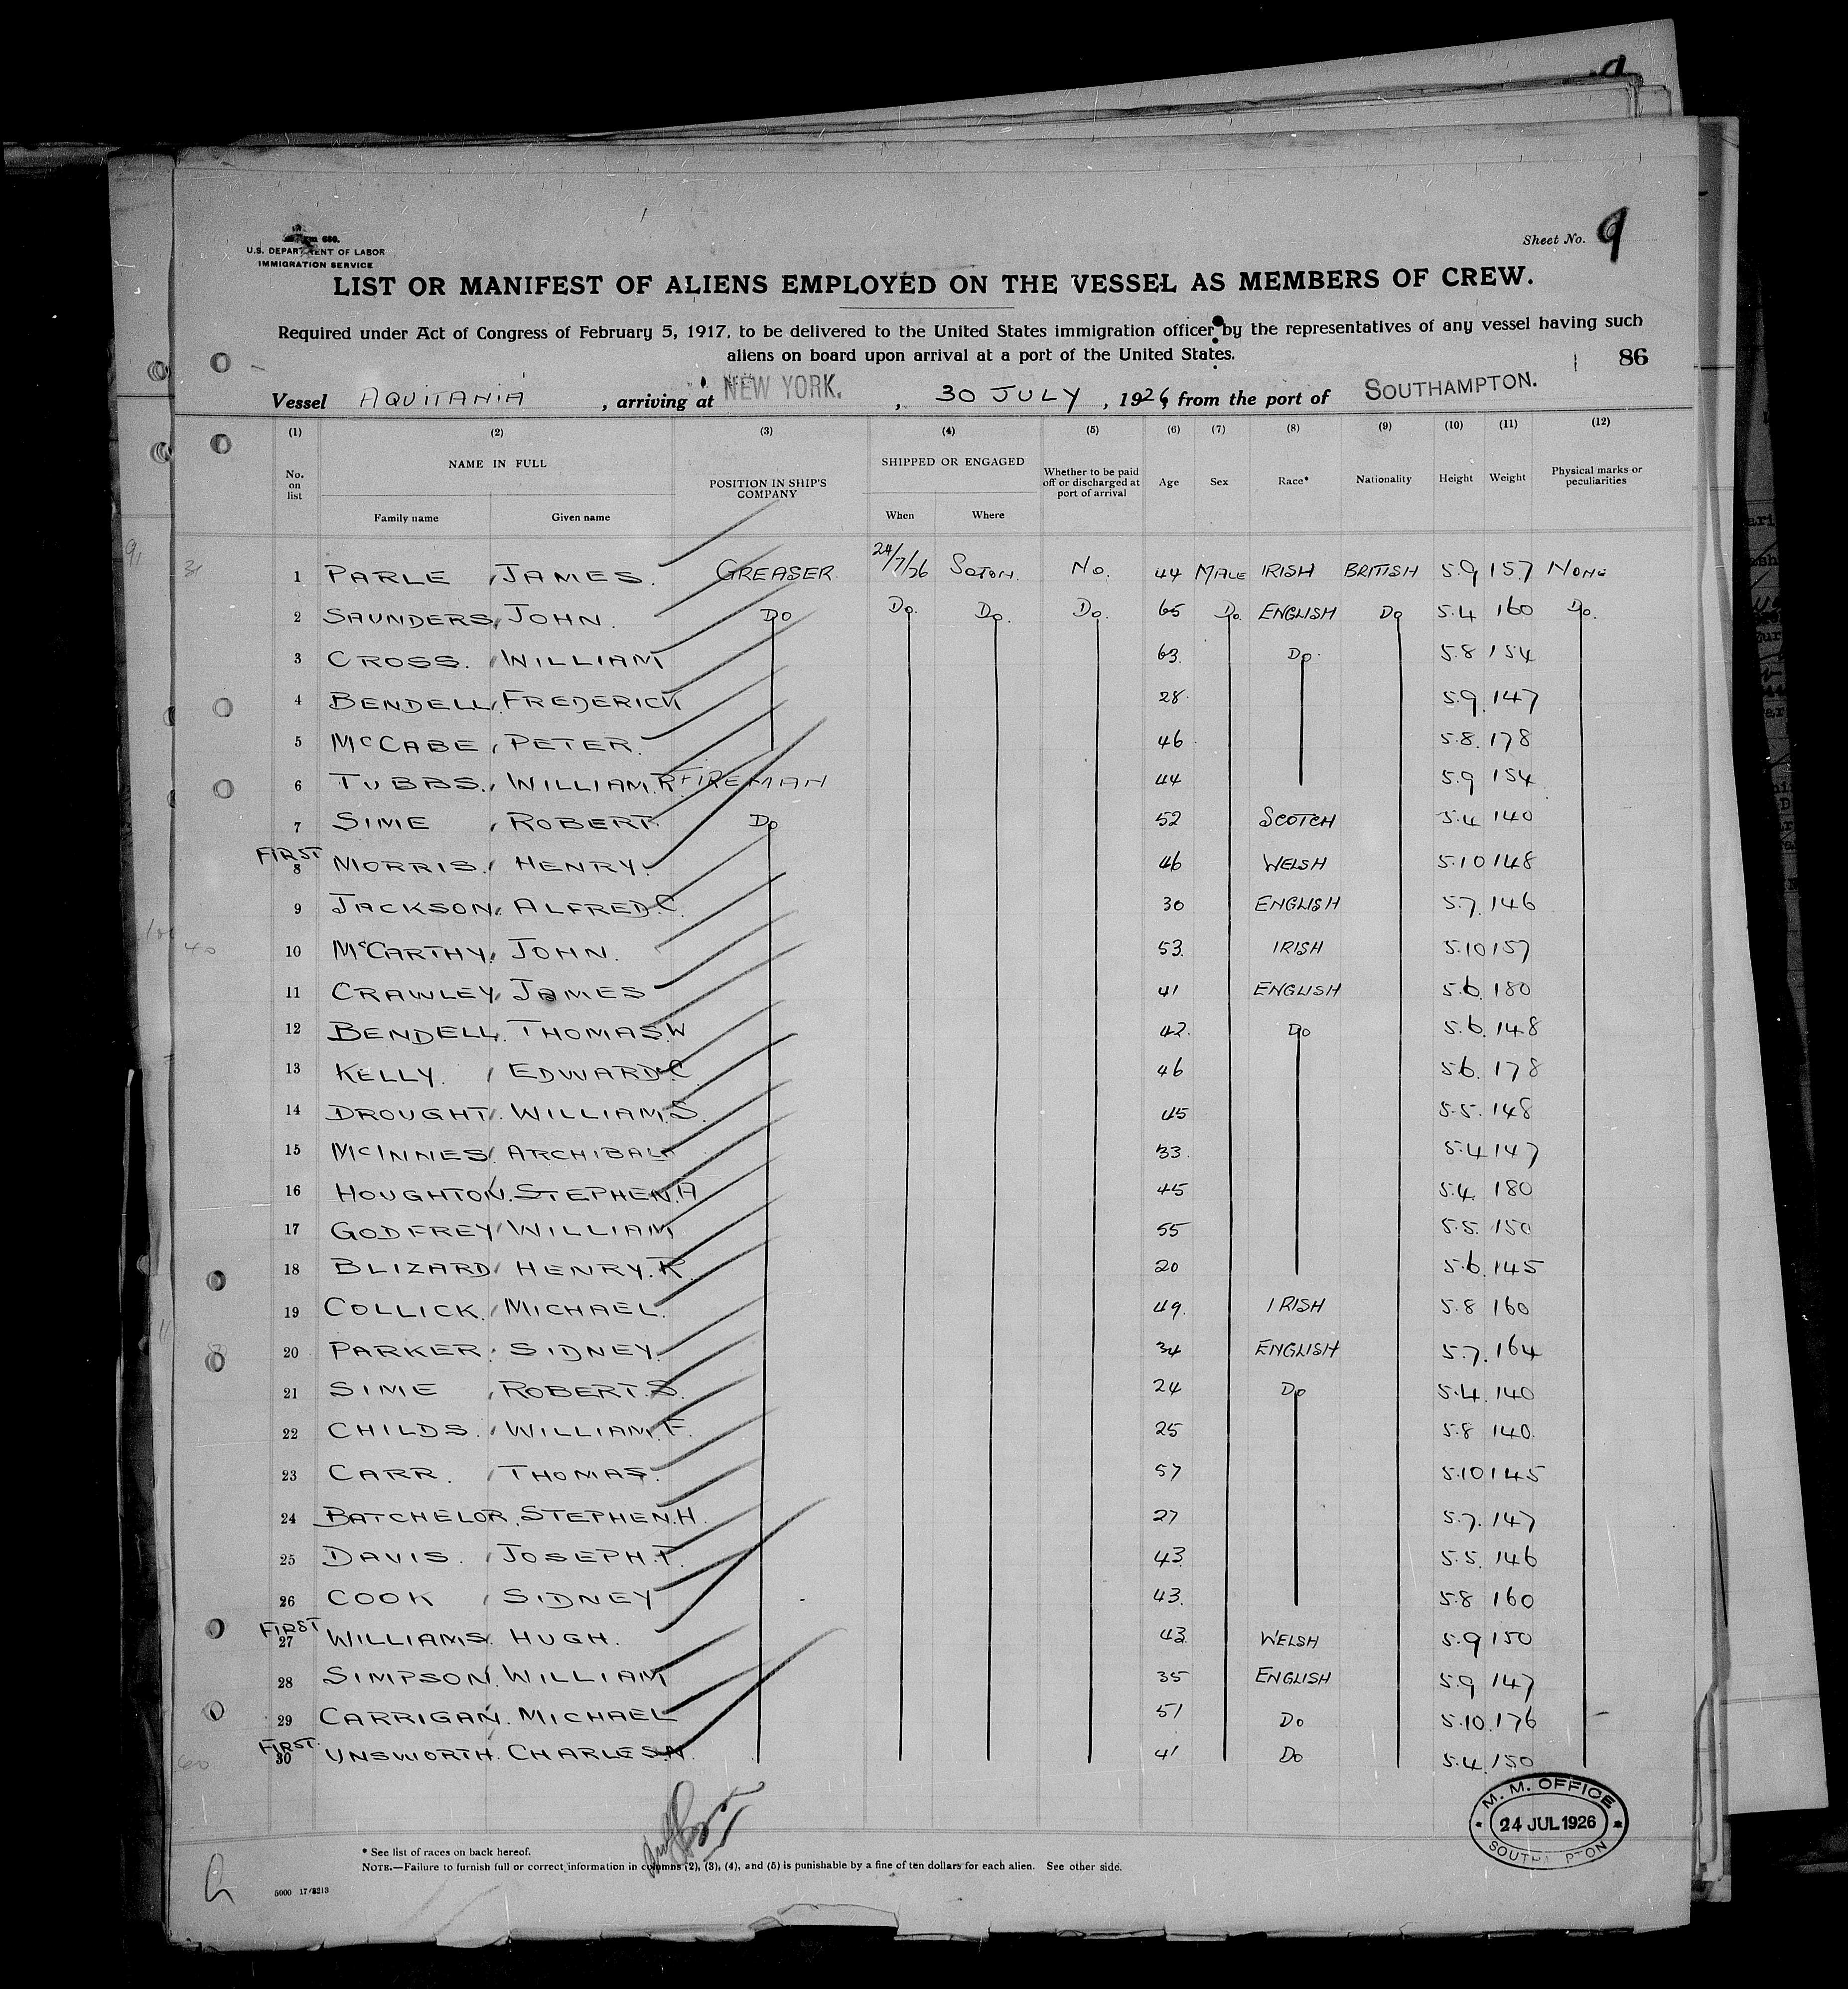 Sheet No. 9
U.S. DEPARTMENT OF LABOR
IMMIGRATION SERVICE
LIST OR MANIFEST OF ALIENS EMPLOYED ON THE VESSEL AS MEMBERS OF CREW.
Required under Act of Congress of February 5, 1917, to be delivered to the United States immigration officer by the representatives of any vessel having such
aliens on board upon arrival at a port of the United States.
86
Vessel AQUITANIA, arriving at NEW YORK., 30 JULY, 1926, from the port of SOUTHAMPTON.
(1) (2) (3) (4) (5) (6) (7) (8) (9) (10) (11) (12)
No. on list NAME IN FULL POSITION IN SHIP'S COMPANY SHIPPED OR ENGAGED Whether to be paid off or discharged at port of arrival Age Sex Race* Nationality Height Weight Physical marks or peculiarities
Family name Given name When Where
1 PARLE, JAMES. GREASER. 24/7/26 SOTON. NO. 44 MALE IRISH BRITISH 5.9 157 NONE
2 SAUNDERS, JOHN. DO DO. DO. DO. 65 DO. ENGLISH DO 5.4 160 DO.
3 CROSS. WILLIAM 63. DO. 5.8 154
4 BENDELL, FREDERICK 28. 5.9. 147
5 McCABE, PETER. 46. 5.8. 178
6 TUBBS., WILLIAM.R FIREMAN 44 5.9 154
7 SIME, ROBERT. DO 52 SCOTCH 5.4 140
FIRST
8 MORRIS. HENRY. 46 WELSH 5.10 148
9 JACKSON. ALFRED.C. 30 ENGLISH 5.7. 146
10 McCARTHY. JOHN. 53. IRISH 5.10 157
11 CRAWLEY, JAMES 41 ENGLISH 5.6. 180
12 BENDELL. THOMAS.W 42. DO 5.6. 148
13 KELLY. EDWARD.C 46 5.6. 178
14 DROUGHT. WILLIAM.S. 45 5.5. 148
15 McINNES. ARCHIBALD 33. 5.4 147
16 HOUGHTON. STEPHEN.A 45 5.4. 180
17 GODFREY WILLIAM 55 5.5. 150
18 BLIZARD HENRY.R. 20 5.6. 145
19 COLLICK. MICHAEL. 49. IRISH 5.8 160
20 PARKER. SIDNEY. 34 ENGLISH 5.7. 164
21 SIME, ROBERT.S. 24 DO 5.4. 140
22 CHILDS. WILLIAM.F. 25 5.8 140.
23 CARR. THOMAS. 57 5.10 145
24 BATCHELOR, STEPHEN.H. 27 5.7. 147
25 DAVIS. JOSEPH.P. 43. 5.5. 146
26 COOK, SIDNEY 43. 5.8 160
FIRST
27 WILLIAMS. HUGH. 43. WELSH 5.9 150
28 SIMPSON. WILLIAM 35 ENGLISH 5.9 147
29 CARRIGAN. MICHAEL 51 DO 5.10. 176
FIRST.
30 UNSWORTH. CHARLES.N. 41 DO 5.4. 150
M. M. OFFICE
24 JUL 1926
SOUTHAMPTON
* See list of races on back hereof.
NOTE.—Failure to furnish full or correct information in columns (2), (3), (4), and (5) is punishable by a fine of ten dollars for each alien. See other side.
5000 17/3213